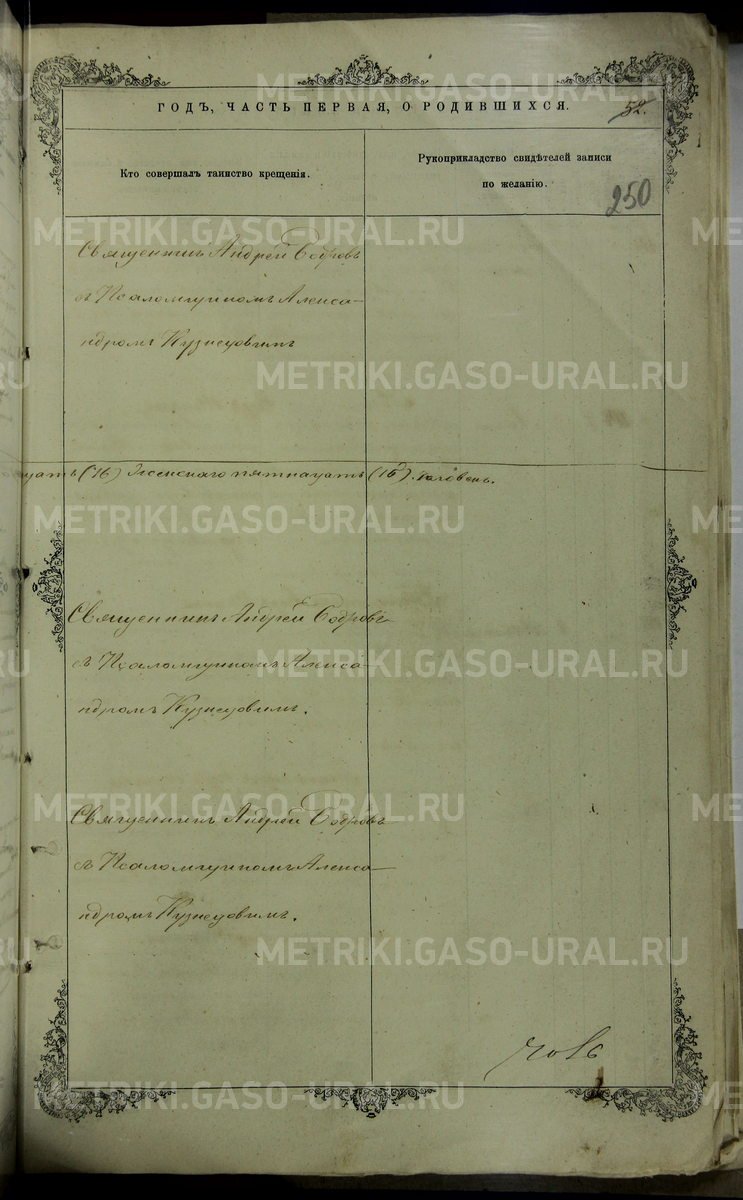 ГОДЪ, ЧАСТЬ ПЕРВАЯ, О РОДИВШИХСЯ.
52.
Кто совершалъ таинство крещенія.
Рукоприкладство свидѣтелей записи
по желанію.
250
Священникъ Андрей Бобровъ
съ Псаломщикомъ Алекса-
ндромъ Кузнецовымъ
цать (16) Женскаго пятнацать (15). человекъ.
Священникъ Андрей Бобровъ
съ Псаломщикомъ Алекса-
ндромъ Кузнецовымъ.
Священникъ Андрей Бобровъ
съ Псаломщикомъ Алекса-
ндромъ Кузнецовымъ.
METRIKI.GASO-URAL.RU